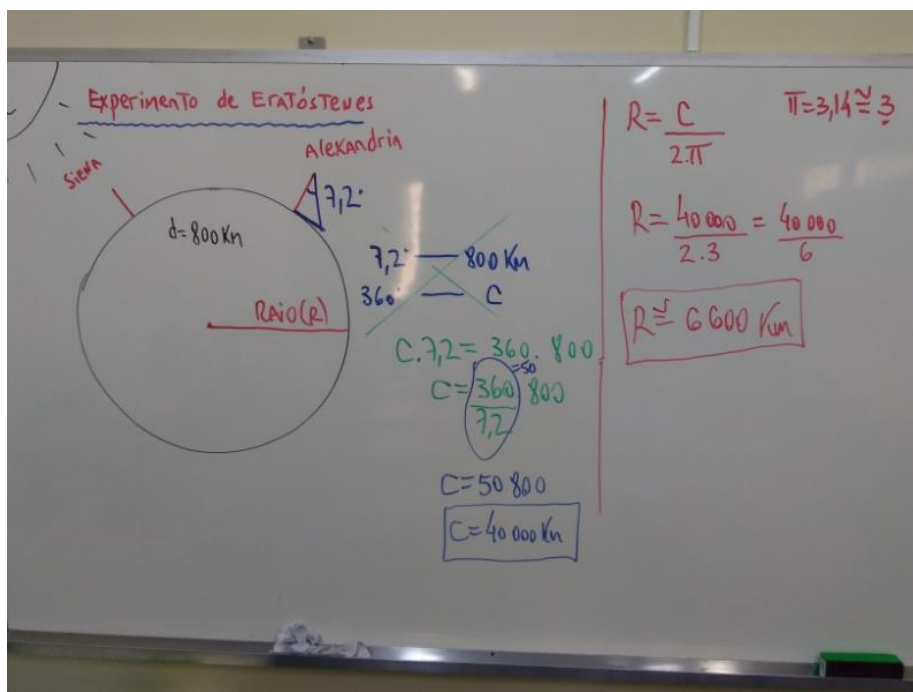 Experimento de Eratóstenes
Siena
Alexandria
7,2°
d=800Km
Raio(R)
7,2° — 800 Km
360° — C
C.7,2 = 360. 800
C= 360/7,2 =50 800
C=50 800
C=40 000Km
π=3,14≅3
R= C/2.π
R= 40 000/2.3 = 40 000/6
R≅ 6 600 Km